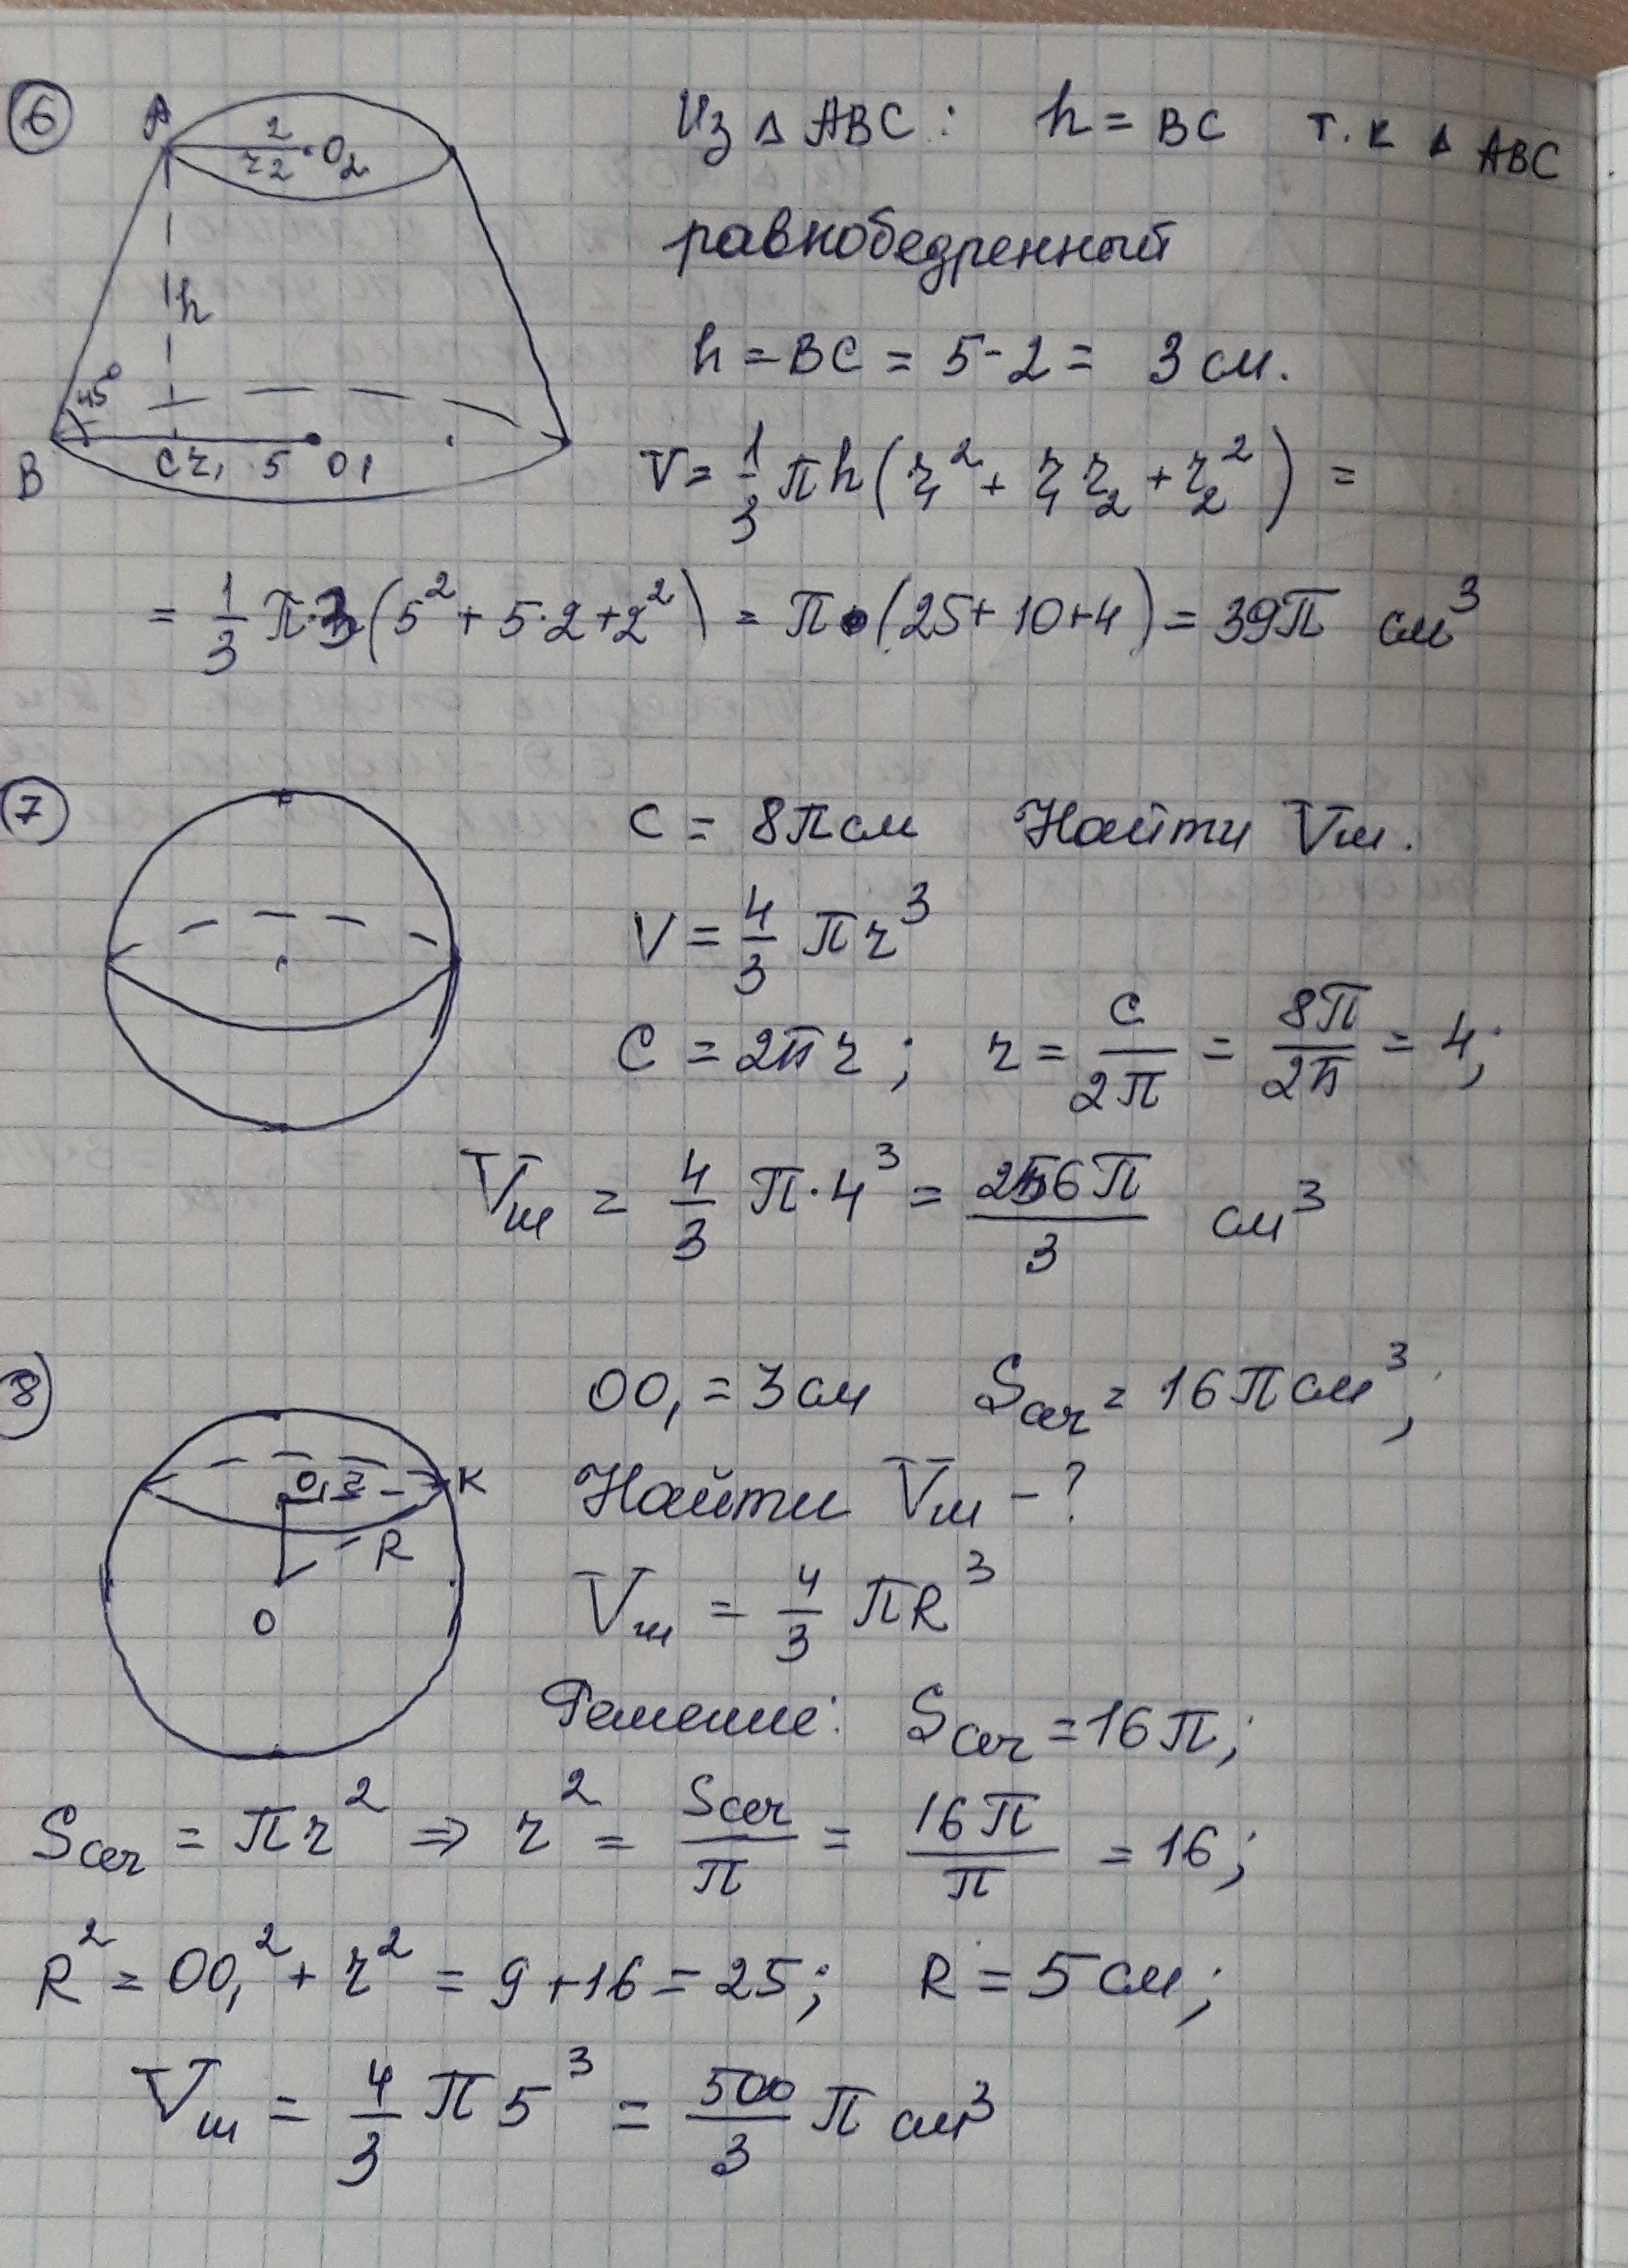 6
A
2
r2 O2
h
45°
B
C r1 5 O1
Из Δ ABC : h = BC т.к Δ ABC
равнобедренный
h = BC = 5 - 2 = 3 см.
V = 1/3 π h (r1² + r1 r2 + r2²) =
= 1/3 π · 3 (5² + 5·2 + 2²) = π · (25 + 10 + 4) = 39π см³
7
C = 8π см Найти Vш.
V = 4/3 π r³
C = 2π r ; r = C/2π = 8π/2π = 4;
Vш = 4/3 π · 4³ = 256π/3 см³
8)
O1 r K
R
O
OO1 = 3 см Sсеч = 16π см³;
Найти Vш - ?
Vш = 4/3 πR³
Решение: Sсеч = 16π;
Sсеч = πr² ⇒ r² = Sсеч/π = 16π/π = 16;
R² = OO1² + r² = 9 + 16 = 25; R = 5 см;
Vш = 4/3 π 5³ = 500/3 π см³